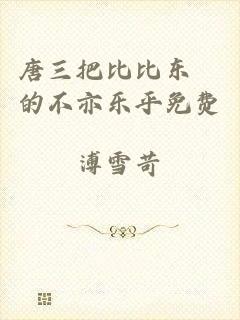 唐三把比比东
的不亦乐乎免费
溥雪苛